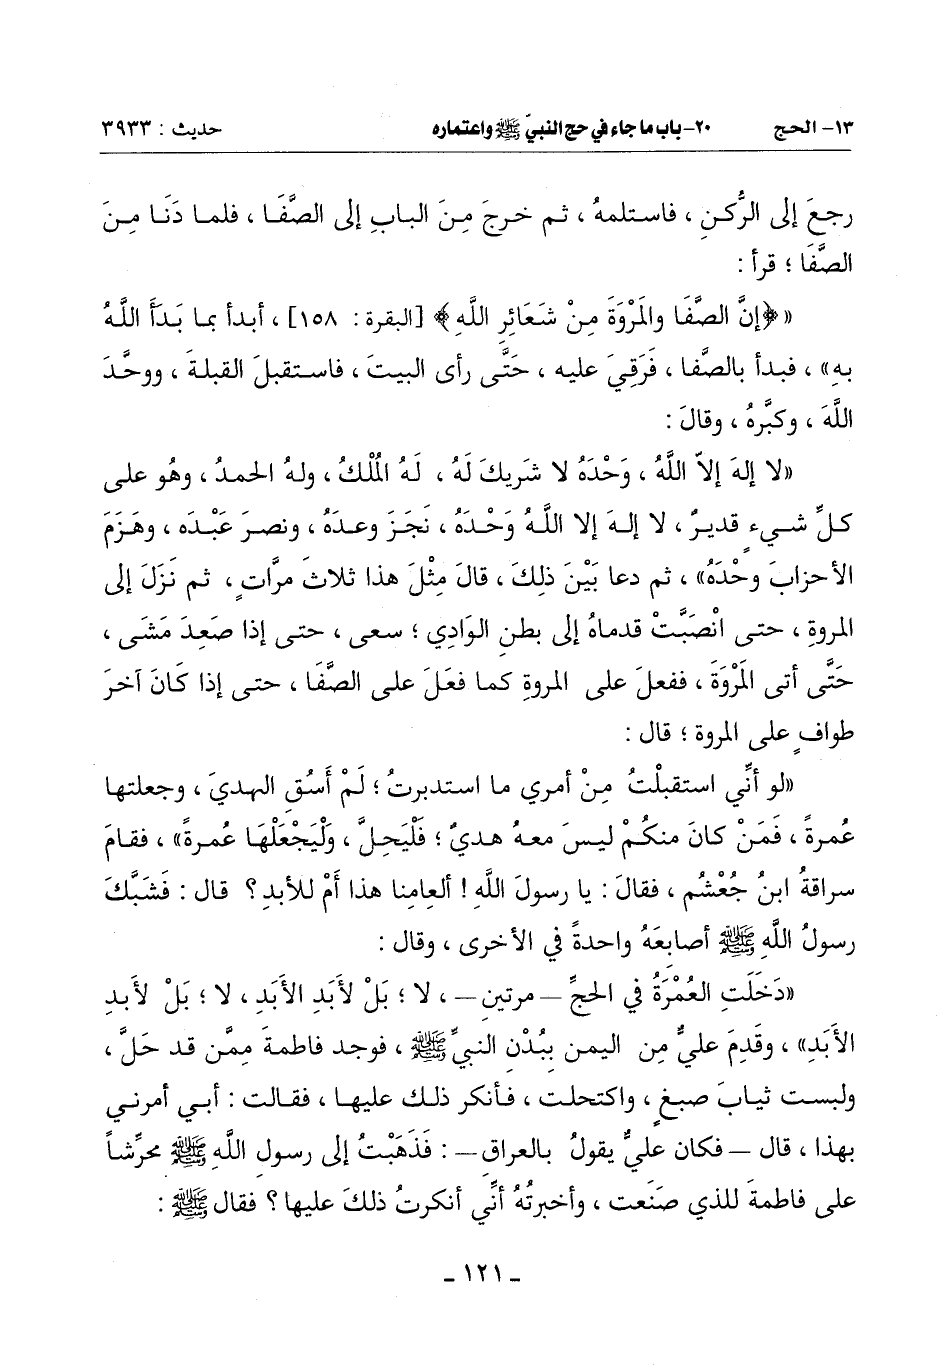 ١٣- الحج ٢٠- باب ما جاء في حج النبيّ ﷺ واعتماره حديث : ٣٩٣٣
رجعَ إلى الرُّكنِ ، فاستلمهُ ، ثم خرجَ مِنَ البابِ إلى الصَّفَا ، فلما دَنَا مِنَ
الصَّفَا ؛ قرأ :
«﴿إنَّ الصَّفَا والمَرْوَةَ مِنْ شَعَائِرِ اللَّهِ﴾ [البقرة: ١٥٨] ، أبدأ بما بَدَأَ اللَّهُ
بهِ» ، فبدأ بالصَّفا ، فَرَقِيَ عليه ، حَتَّى رأى البيتَ ، فاستقبلَ القبلةَ ، ووحَّدَ
اللَّهَ ، وكبَّرهُ ، وقالَ :
«لا إلهَ إلاّ اللَّهُ ، وَحْدَهُ لا شَريكَ لَهُ ، لَهُ المُلْكُ ، ولهُ الحمدُ ، وهُو على
كلِّ شيءٍ قديرٌ ، لا إلهَ إلا اللَّهُ وَحْدَهُ ، نَجَزَ وعدَهُ ، ونصرَ عَبْدَه ، وهَزَمَ
الأحزابَ وحْدَهُ» ، ثم دعا بَيْنَ ذلِكَ ، قالَ مِثْلَ هذا ثلاثَ مرَّاتٍ ، ثم نَزَلَ إلى
المروةِ ، حتى انْصَبَّتْ قدماهُ إلى بطنِ الوَادِي ؛ سعى ، حتى إذا صَعِدَ مَشَى ،
حَتَّى أتى المَرْوَةَ ، ففعلَ على المروةِ كما فعَلَ على الصَّفَا ، حتى إذا كَانَ آخرَ
طوافٍ على المروة ؛ قال :
«لو أنِّي استقبلْتُ مِنْ أمري ما استدبرتُ ؛ لَمْ أَسُقِ الهديَ ، وجعلتها
عُمرةً ، فَمَنْ كانَ منكُمْ ليسَ معهُ هديٌ ؛ فَلْيَحِلَّ ، وَلْيَجْعَلْهَا عُمرةً» ، فقامَ
سراقةُ ابنُ جُعْشُمٍ ، فقالَ : يا رسولَ اللَّهِ ! ألعامِنا هذا أَمْ للأبدِ ؟ قال : فَشَبَّكَ
رسولُ اللَّهِ ﷺ أصابعَهُ واحدةً في الأخرى ، وقال :
«دَخَلَتِ العُمْرَةُ في الحجِّ – مرتين – ، لا ؛ بَلْ لأبَدِ الأبَدِ ، لا ؛ بَلْ لأبدِ
الأَبَدِ» ، وقَدِمَ عليٌّ مِن اليمن ببُدْنِ النبيِّ ﷺ ، فوجد فاطمةَ ممَّن قد حَلَّ ،
ولبست ثيابَ صبغٍ ، واكتحلت ، فأنكر ذلك عليها ، فقالت : أبي أمرني
بهذا ، قال – فكان عليٌّ يقولُ بالعراق – : فَذَهَبْتُ إلى رسول اللَّهِ ﷺ محرِّشاً
على فاطمةَ للذي صنَعت ، وأخبرتُهُ أنِّي أنكرتُ ذلكَ عليها ؟ فقال ﷺ :
- ١٢١ -